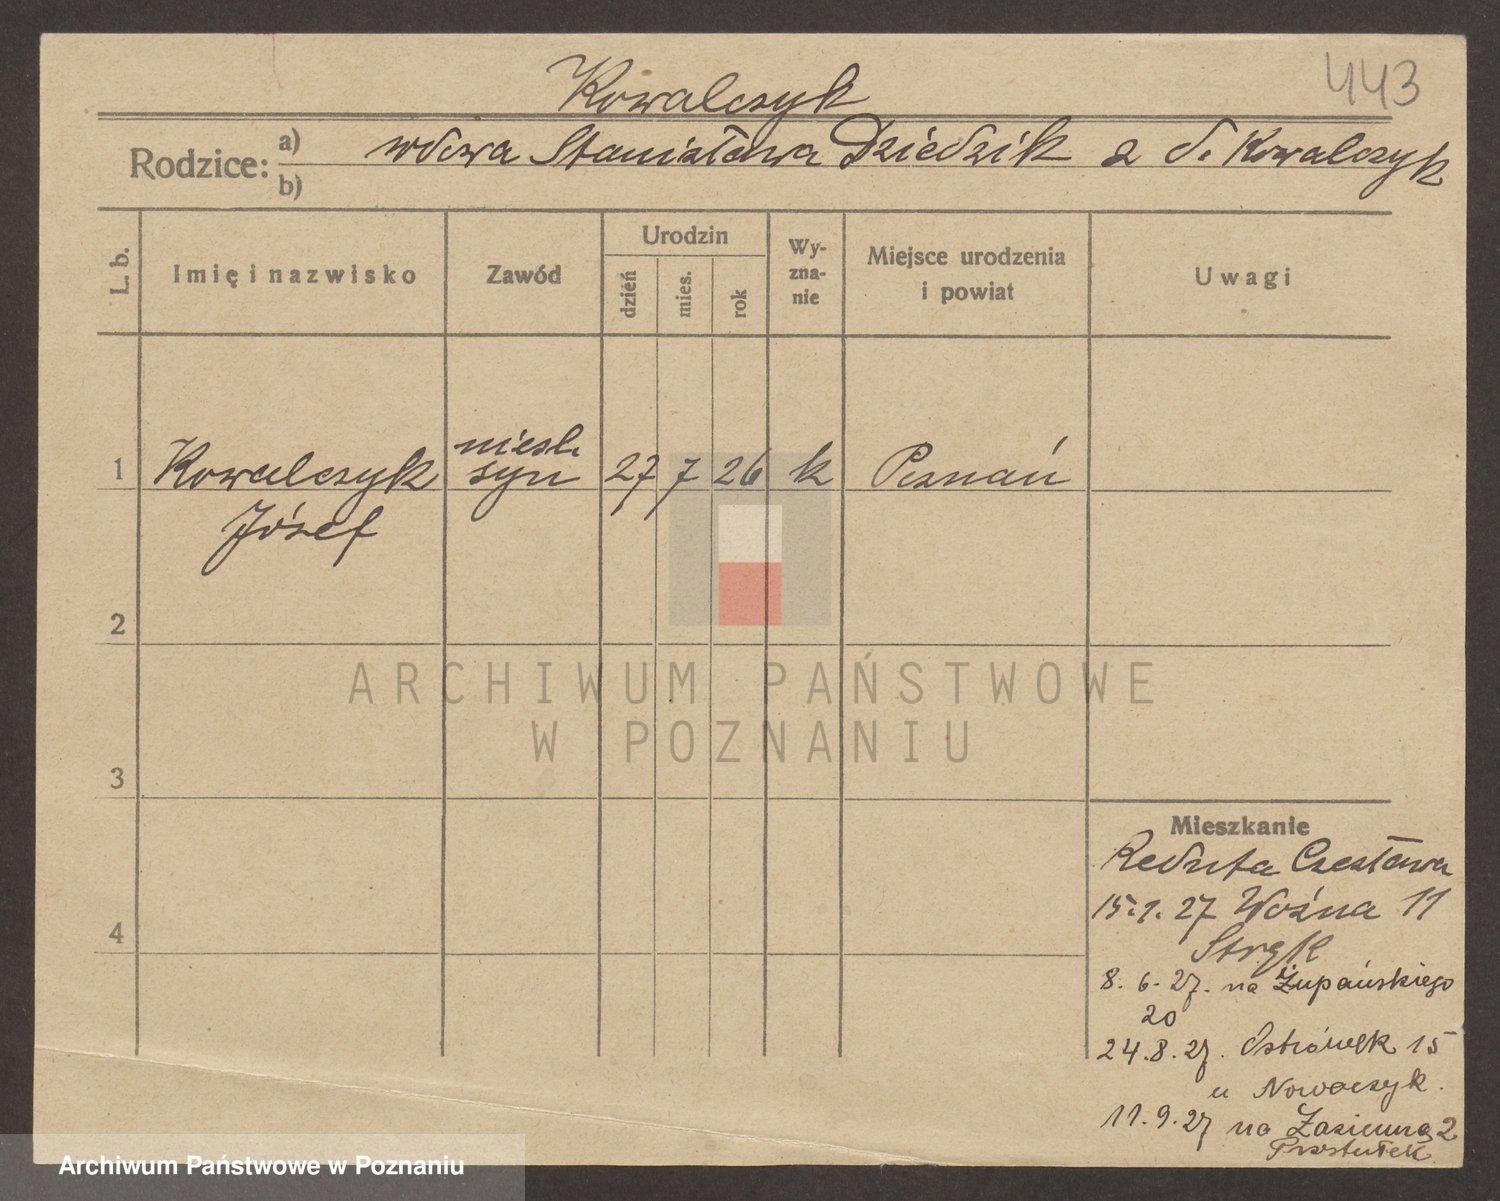 Kowalczyk
443
Rodzice:
a) wdowa Stanisława Dziedzik z d. Kowalczyk
b)
L. b.
Imię i nazwisko
Zawód
Urodzin
dzień
mies.
rok
Wy-
zna-
nie
Miejsce urodzenia
i powiat
Uwagi
1 Kowalczyk
Józef
nieśl.
syn
27 7 26 k Poznań
2
3
4
Mieszkanie
Reduta Czesława
15.1.27 Woźna 11
8. 6. 27. na Żupańskiego
20
24. 8. 27. Ostrówek 15
u Nowaczyk.
11. 9. 27 na 2
ARCHIWUM PAŃSTWOWE
W POZNANIU
Archiwum Państwowe w Poznaniu